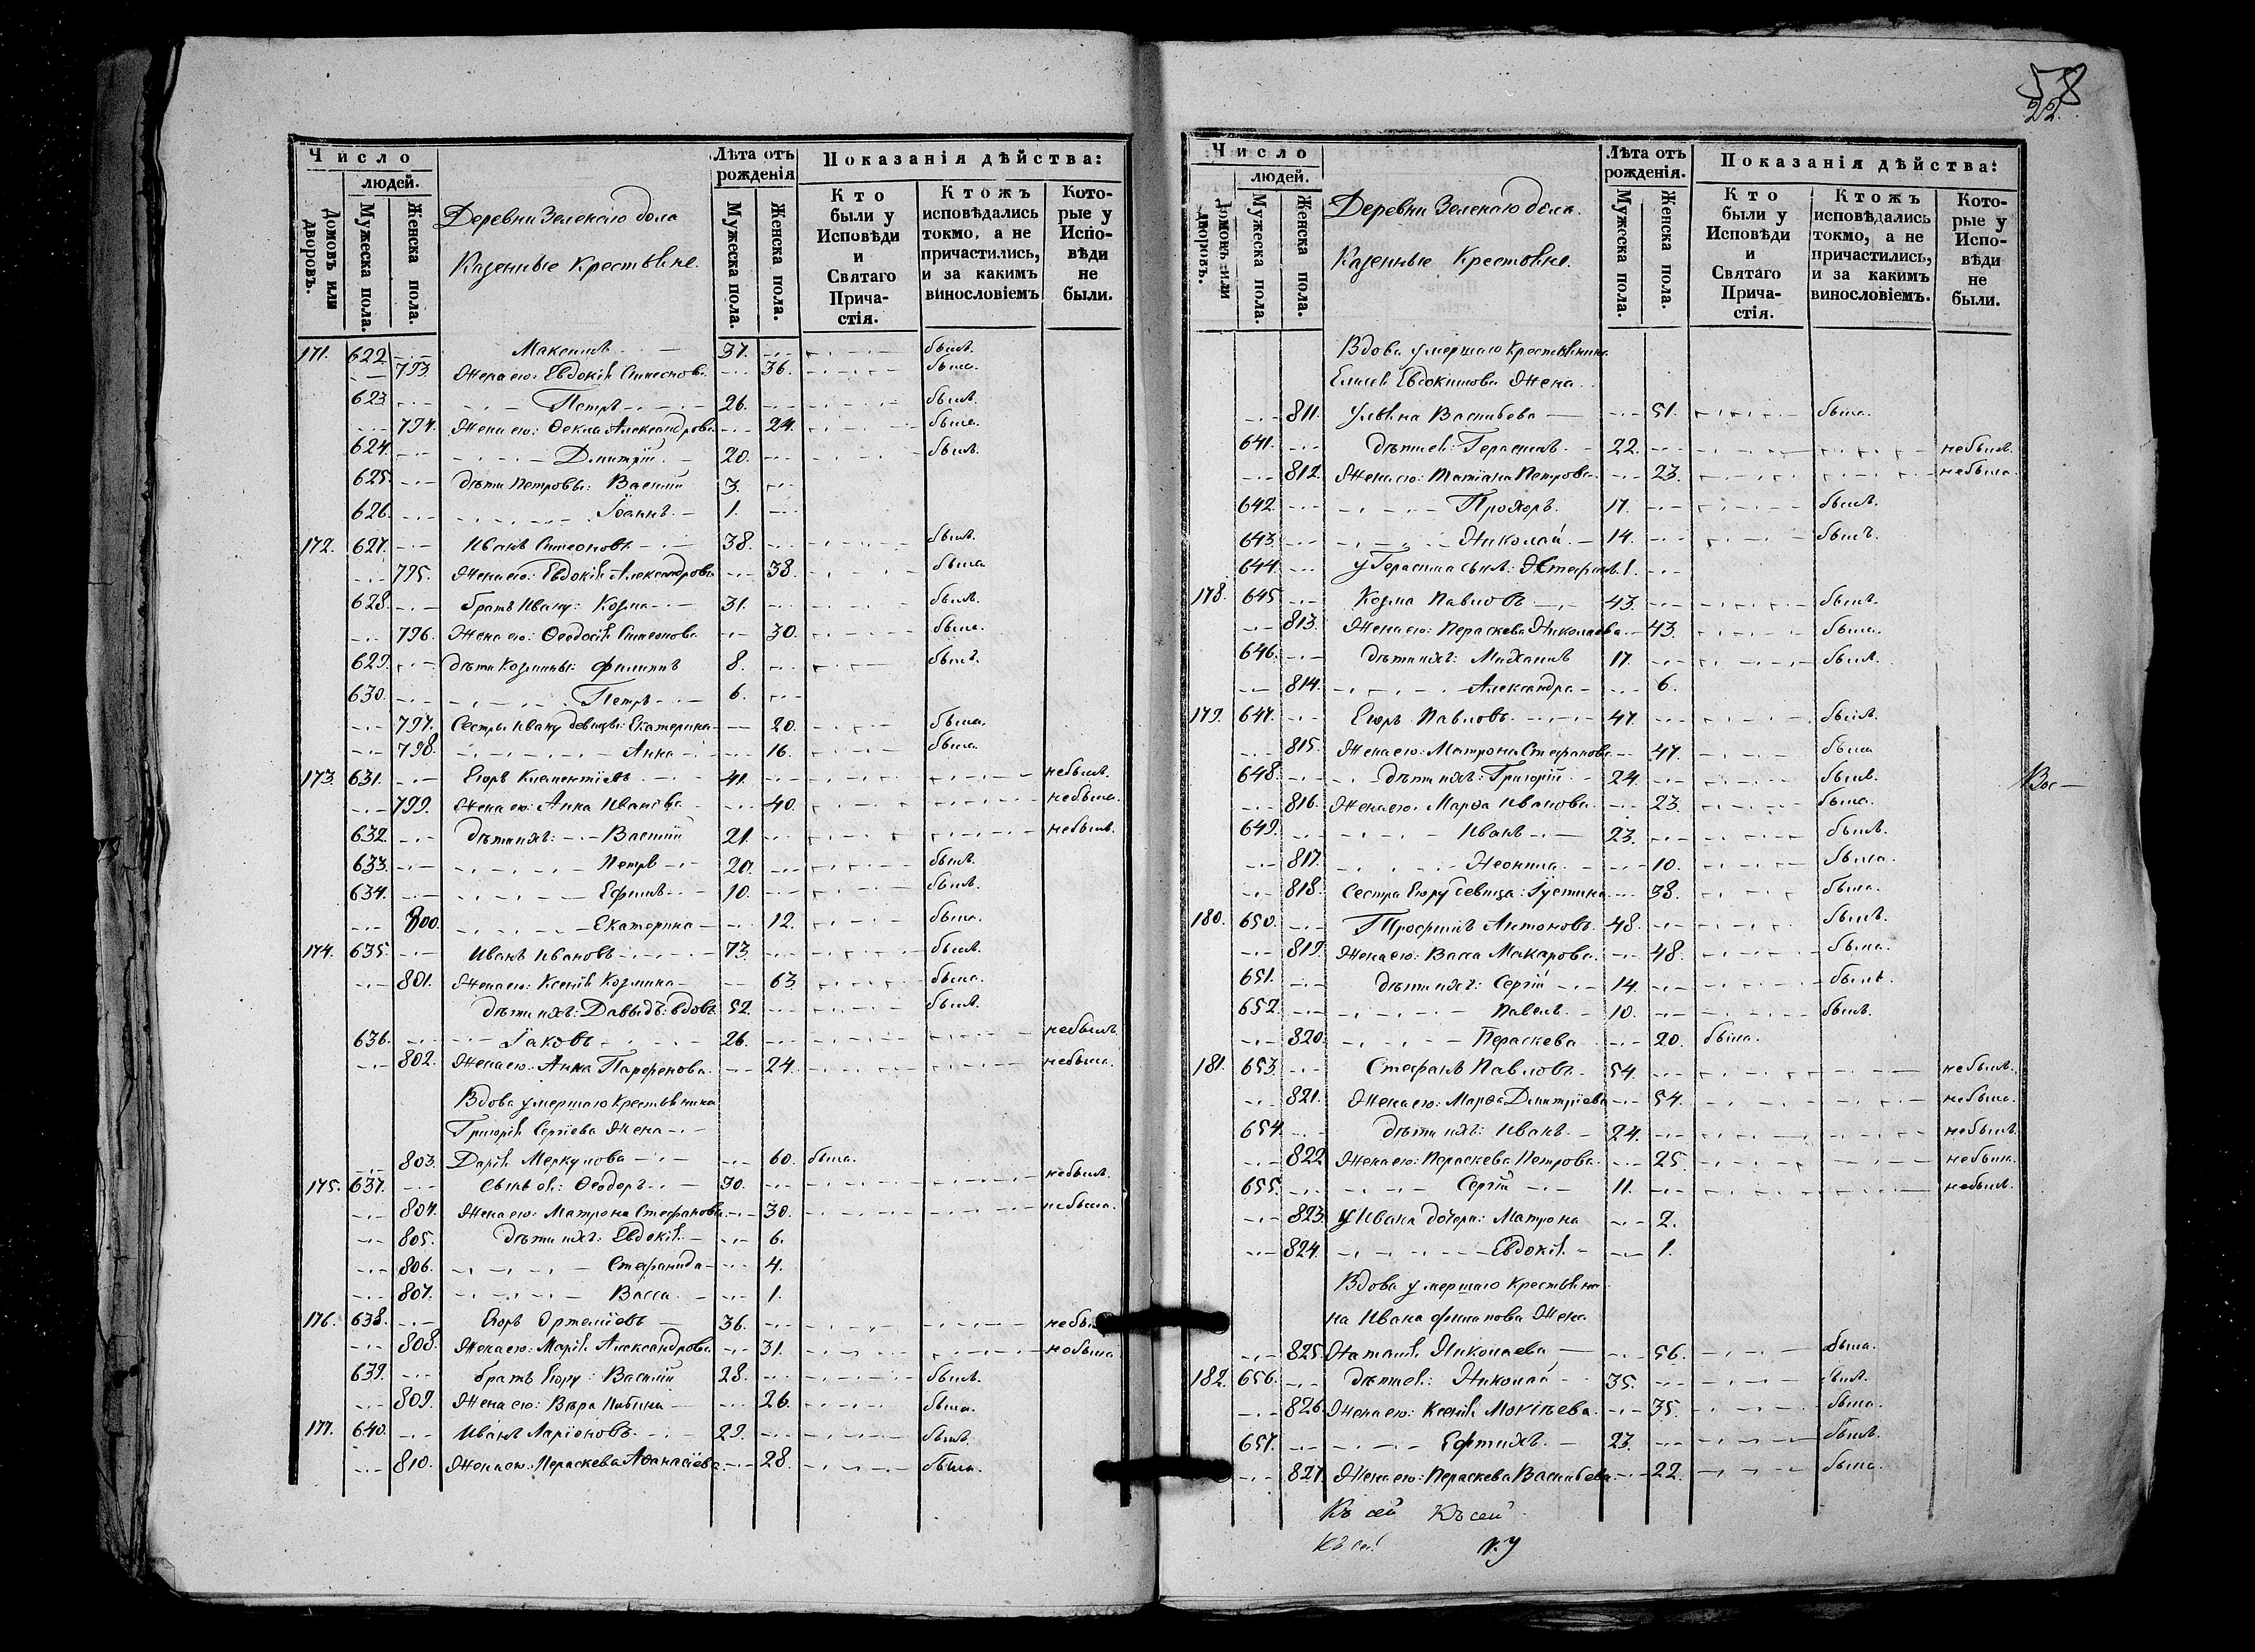 58
22.
Число
людей.
Домовъ или дворовъ.
Мужеска пола.
Женска пола.
Деревни Зеленаго дола
Казенные Крестьяне.
Лѣта отъ рожденія
Мужеска пола.
Женска пола.
Показанія дѣйства:
Кто были у Исповѣди и Святаго Причастія.
Ктожъ исповѣдались токмо, а не причастились, и за какимъ винословіемъ
Которые у Исповѣди не были.
171. 622. Максимъ 37. былъ.
793. Жена его: Евдокія Симеонова 36. была.
623. Петръ 26. былъ.
794. Жена его: Ѳекла Александрова 24. была.
624. Дмитрій 20. былъ.
625. дѣти Петровы: Василій 3.
626. Іоаннъ 1.
172. 627. Иванъ Симеоновъ 38. былъ.
795. Жена его: Евдокія Александрова 38. была
628. братъ Ивану: Козма 31. былъ.
796. Жена его: Ѳеодосія Симеонова 30. была.
629. дѣти Козмины: Филиппъ 8. былъ.
630. Петръ 6.
797. Сестры Ивану девицы: Екатерина 20. была.
798. Анна 16. была.
173. 631. Егоръ Климентіевъ 41. небылъ.
799. Жена его: Анна Иванова 40. небыла.
632. дѣти ихъ: Василій 21. небылъ.
633. Петръ 20. былъ.
634. Ефимъ 10. былъ.
800. Екатерина 12. была.
174. 635. Иванъ Ивановъ 73. былъ.
801. Жена его: Ксенія Козмина 63. была.
дѣти ихъ: Давыдъ: вдовъ 52. былъ.
636. Іаковъ 26. небылъ.
802. Жена его: Анна Парфенова 24. небыла.
Вдова умершаго Крестьянина
Григорія Сергіева Жена
803. Дарія Меркулова 60. была.
175. 637. Сынъ ея: Ѳеодоръ 30. небылъ.
804. Жена его: Матрона Стефанова 30. небыла.
805. дѣти ихъ: Евдокія 6.
806. Стефанида 4.
807. Васса 1.
176. 638. Егоръ Артеміевъ 36.
808. Жена его: Марія Александрова 31. небыла.
639. братъ Егору: Василій 28. былъ.
809. Жена его: Вѣра 26. была.
177. 640. Иванъ Ларіоновъ 29. былъ.
810. Жена его: Пераскева Аѳанасіева 28. была.
Число
людей.
Домовъ или дворовъ.
Мужеска пола.
Женска пола.
Деревни Зеленаго дола.
Казенные Крестьяне.
Лѣта отъ рожденія.
Мужеска пола.
Женска пола.
Показанія дѣйства:
Кто были у Исповѣди и Святаго Причастія.
Ктожъ исповѣдались токмо, а не причастились, и за какимъ винословіемъ.
Которые у Исповѣди не были.
Вдова умершаго Крестьянина
Елисея Евдокимова Жена
811. Ульяна Васильева 51. была.
641. дѣти ея: Герасимъ 22. небылъ.
812. Жена его: Татіана Петрова 23. небыла.
642. Прохоръ 17. былъ.
643. Николай 14. былъ.
644. у Герасима сынъ: 1.
178. 645. Козма Павловъ 43. былъ.
813. Жена его: Пераскева Николаева 43. была.
646. дѣти ихъ: Михаилъ 17. былъ.
814. Александра 6.
179. 647. Егоръ Павловъ 47. былъ.
815. Жена его: Матрона Стефанова 47. была
648. дѣти ихъ: Григорій 24. былъ.
816. Жена его: Марѳа Иванова 23. была.
649. Иванъ 23. былъ.
817. Неонила 10. была.
818. Сестра Егору девица: Іустина 38. была.
180. 650. Трофимъ Антоновъ 48. былъ.
819. Жена его: Васса Макарова 48. была.
651. дѣти ихъ: Сергій 14. былъ.
652. Павелъ 10. былъ.
820. Пераскева 20. была.
181. 653. Стефанъ Павловъ 54. небылъ.
821. Жена его: Марѳа Дмитріева 54. небыла.
654. дѣти ихъ: Иванъ 24. небылъ.
822. Жена его: Пераскева Петрова 25. небыла.
655. Сергій 11. небылъ.
823. у Ивана дочери: Матрона 2.
824. Евдокія 1.
Вдова умершаго Крестьяни
на Ивана Филипова Жена
825. Наталія Николаева 56. была.
182. 656. дѣти ея: Николай 35. былъ.
826. Жена его: Ксенія Мокіева 35. была.
657. Ефтихъ 23. былъ.
827. Жена его: Пераскева Васильева 22. была.
Къ сей Къ сей
Къ сей